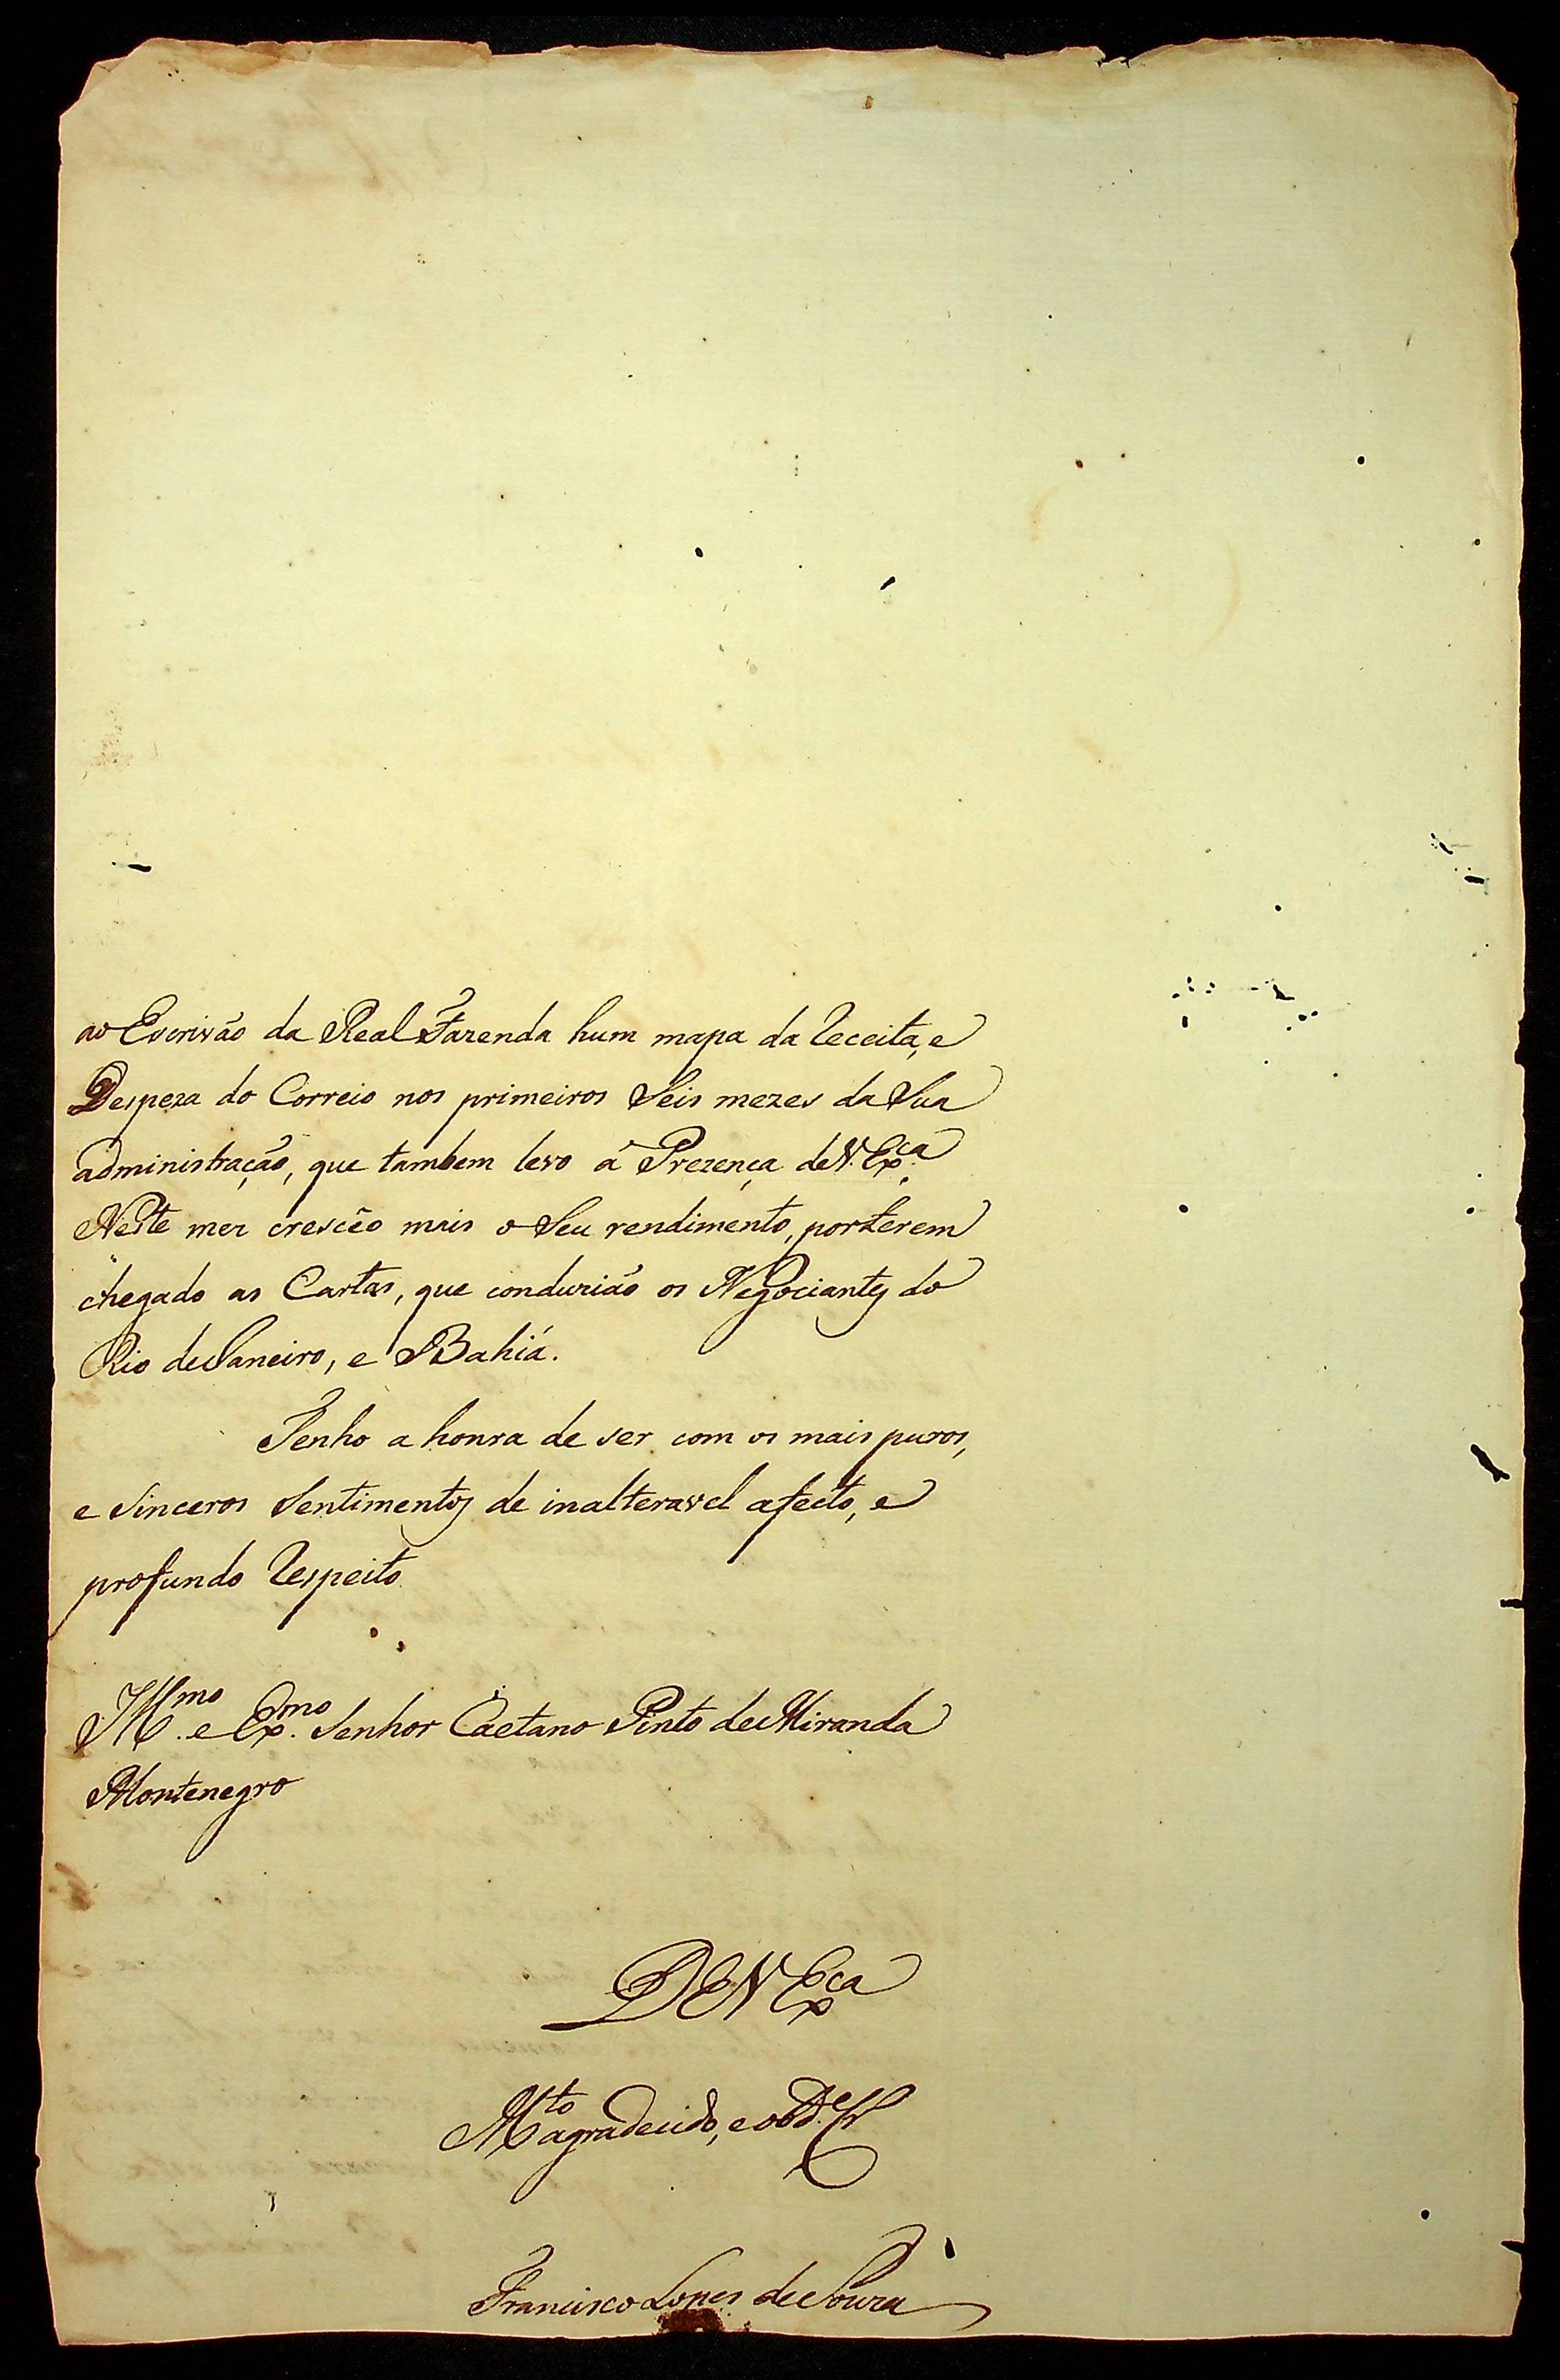 ao Escrivão da Real Fazenda hum mapa da Receita, e
Despeza do Correio nos primeiros Seis mezes da Sua
administração, que tambem levo á Prezença de V. Exca.
Neste mez cresceo mais o Seu rendimento, por terem
chegado as Cartas, que conduzião os Negociantes do
Rio de Janeiro, e Bahiá.
Tenho a honra de ser com os mais puros,
e Sinceros Sentimentos de inalteravel afecto, e
profundo Respeito
Illmo. e Exmo. Senhor Caetano Pinto de Miranda
Montenegro
De V Exca
Mto agradecido, e obde. Cr
Francisco Lopes de Souza